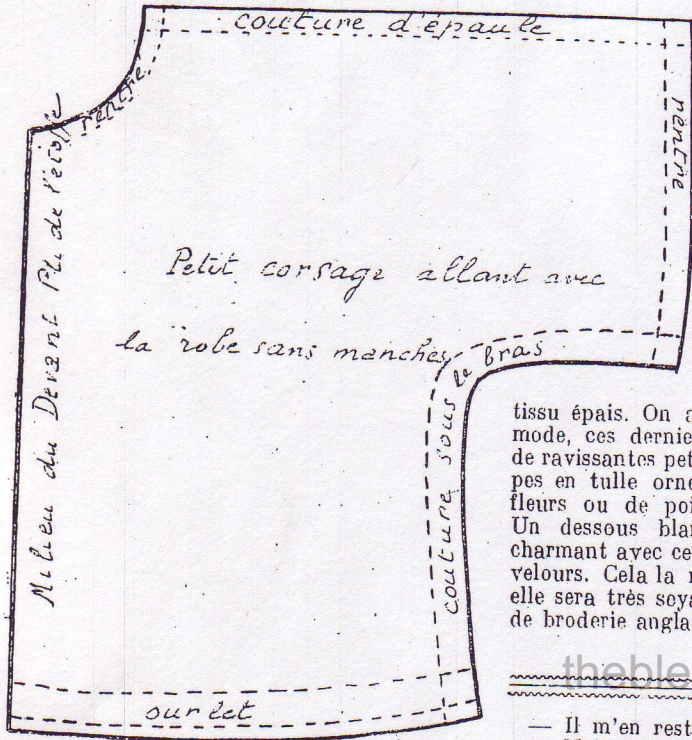 couture d'épaule
rentré
rentré
Milieu du Devant Pli de l'étoffe
Petit corsage allant avec
la robe sans manches
couture sous le bras
ourlet
tissu épais. On a
mode, ces dernie
de ravissantes pet
pes en tulle orne
fleurs ou de poi
Un dessous blan
charmant avec ce
velours. Cela la r
elle sera très soya
de broderie angla
theble
— Il m'en rest